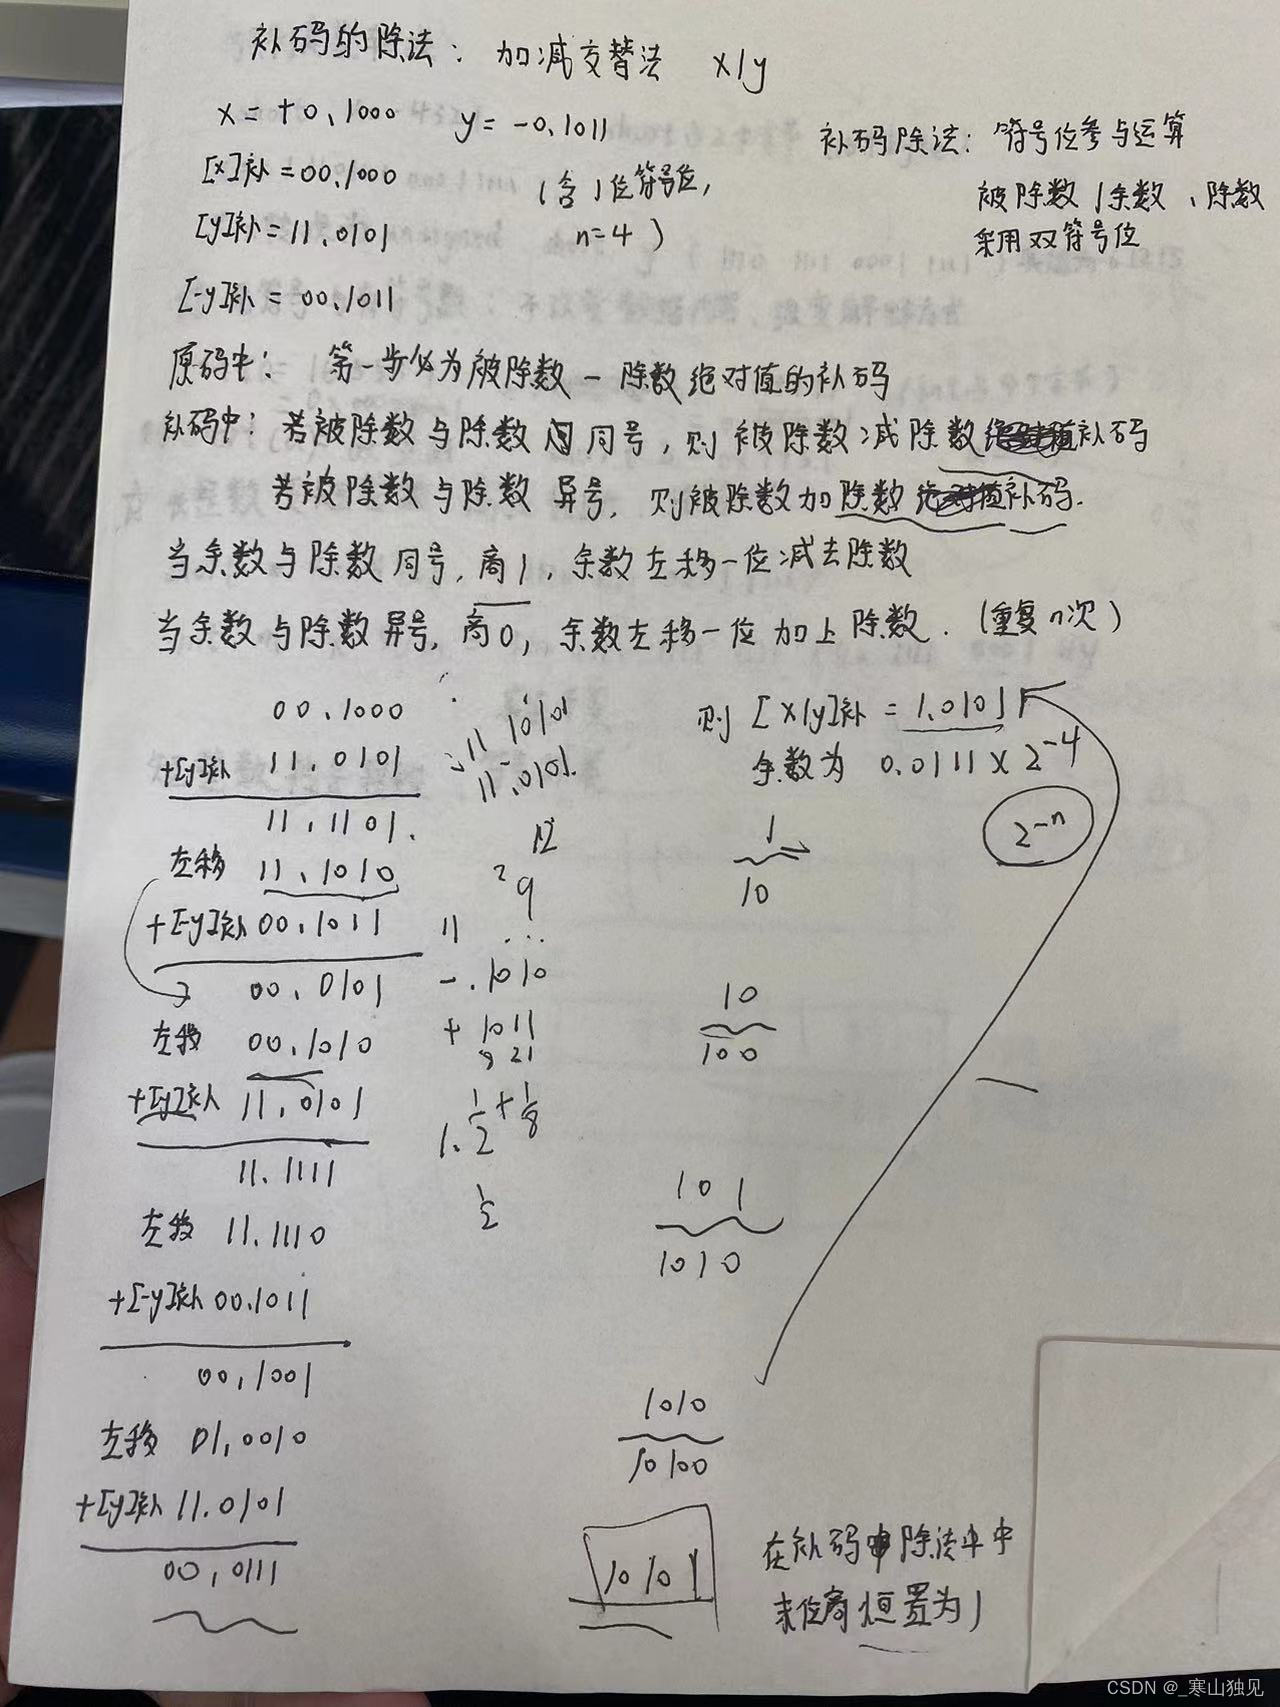 补码的除法：加减交替法 x/y
x=+0.1000 y=-0.1011
[x]补=00.1000 (含1位符号位,
[y]补=11.0101 n=4)
[-y]补=00.1011
补码除法：符号位参与运算
被除数/余数、除数
采用双符号位
原码中：第一步必为被除数-除数绝对值的补码
补码中：若被除数与除数同号，则被除数减除数补码
若被除数与除数异号，则被除数加除数补码.
当余数与除数同号,商1,余数左移一位减去除数
当余数与除数异号,商0,余数左移一位加上除数.(重复n次)
00.1000
+[y]补 11.0101
11.1101.
左移 11.1010
+[-y]补 00.1011
00.0101
左移 00.1010
+[y]补 11.0101
11.1111
左移 11.1110
+[-y]补 00.1011
00.1001
左移 01.0010
+[y]补 11.0101
00.0111
11 10101
11.0101.
12
2 9
11 ...
-.1010
+ 1011
21
1/2+1/8
1.
1/2
则[x/y]补=1.0101
余数为 0.0111×2^-4
2^-n
1
10
10
100
101
1010
1010
10100
10101
在补码除法中
末位商恒置为1
CSDN @_寒山独见